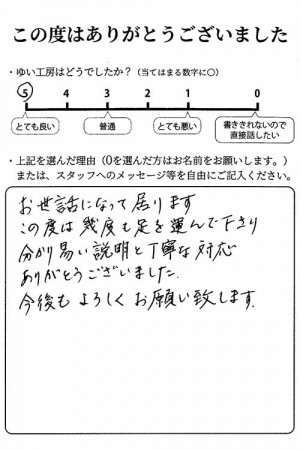 この度はありがとうございました
・ゆい工房はどうでしたか？（当てはまる数字に○）
5 4 3 2 1 0
とても良い 普通 とても悪い 書ききれないので直接話したい
・上記を選んだ理由（0を選んだ方はお名前をお願いします。）
または、スタッフへのメッセージ等を自由にご記入ください。
お世話になって居ります
この度は幾度も足を運んで下さり
分かり易い説明と丁寧な対応
ありがとうございました.
今後も よろしく お願い致します.